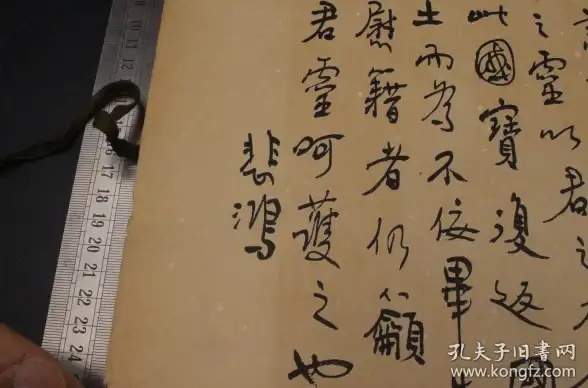 之靈以君之
此國寶復返
土而為不佞畢
慰籍者仍籲
君靈呵護之也
悲鴻
10
11
12
17
18
19
20
21
22
23
24
孔夫子旧书网
www.kongfz.com